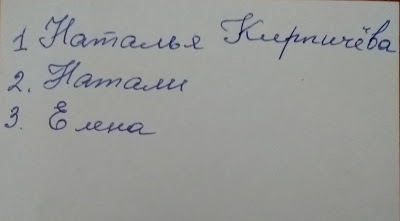 1 Наталья Кирпичёва
2. Натали
3. Елена